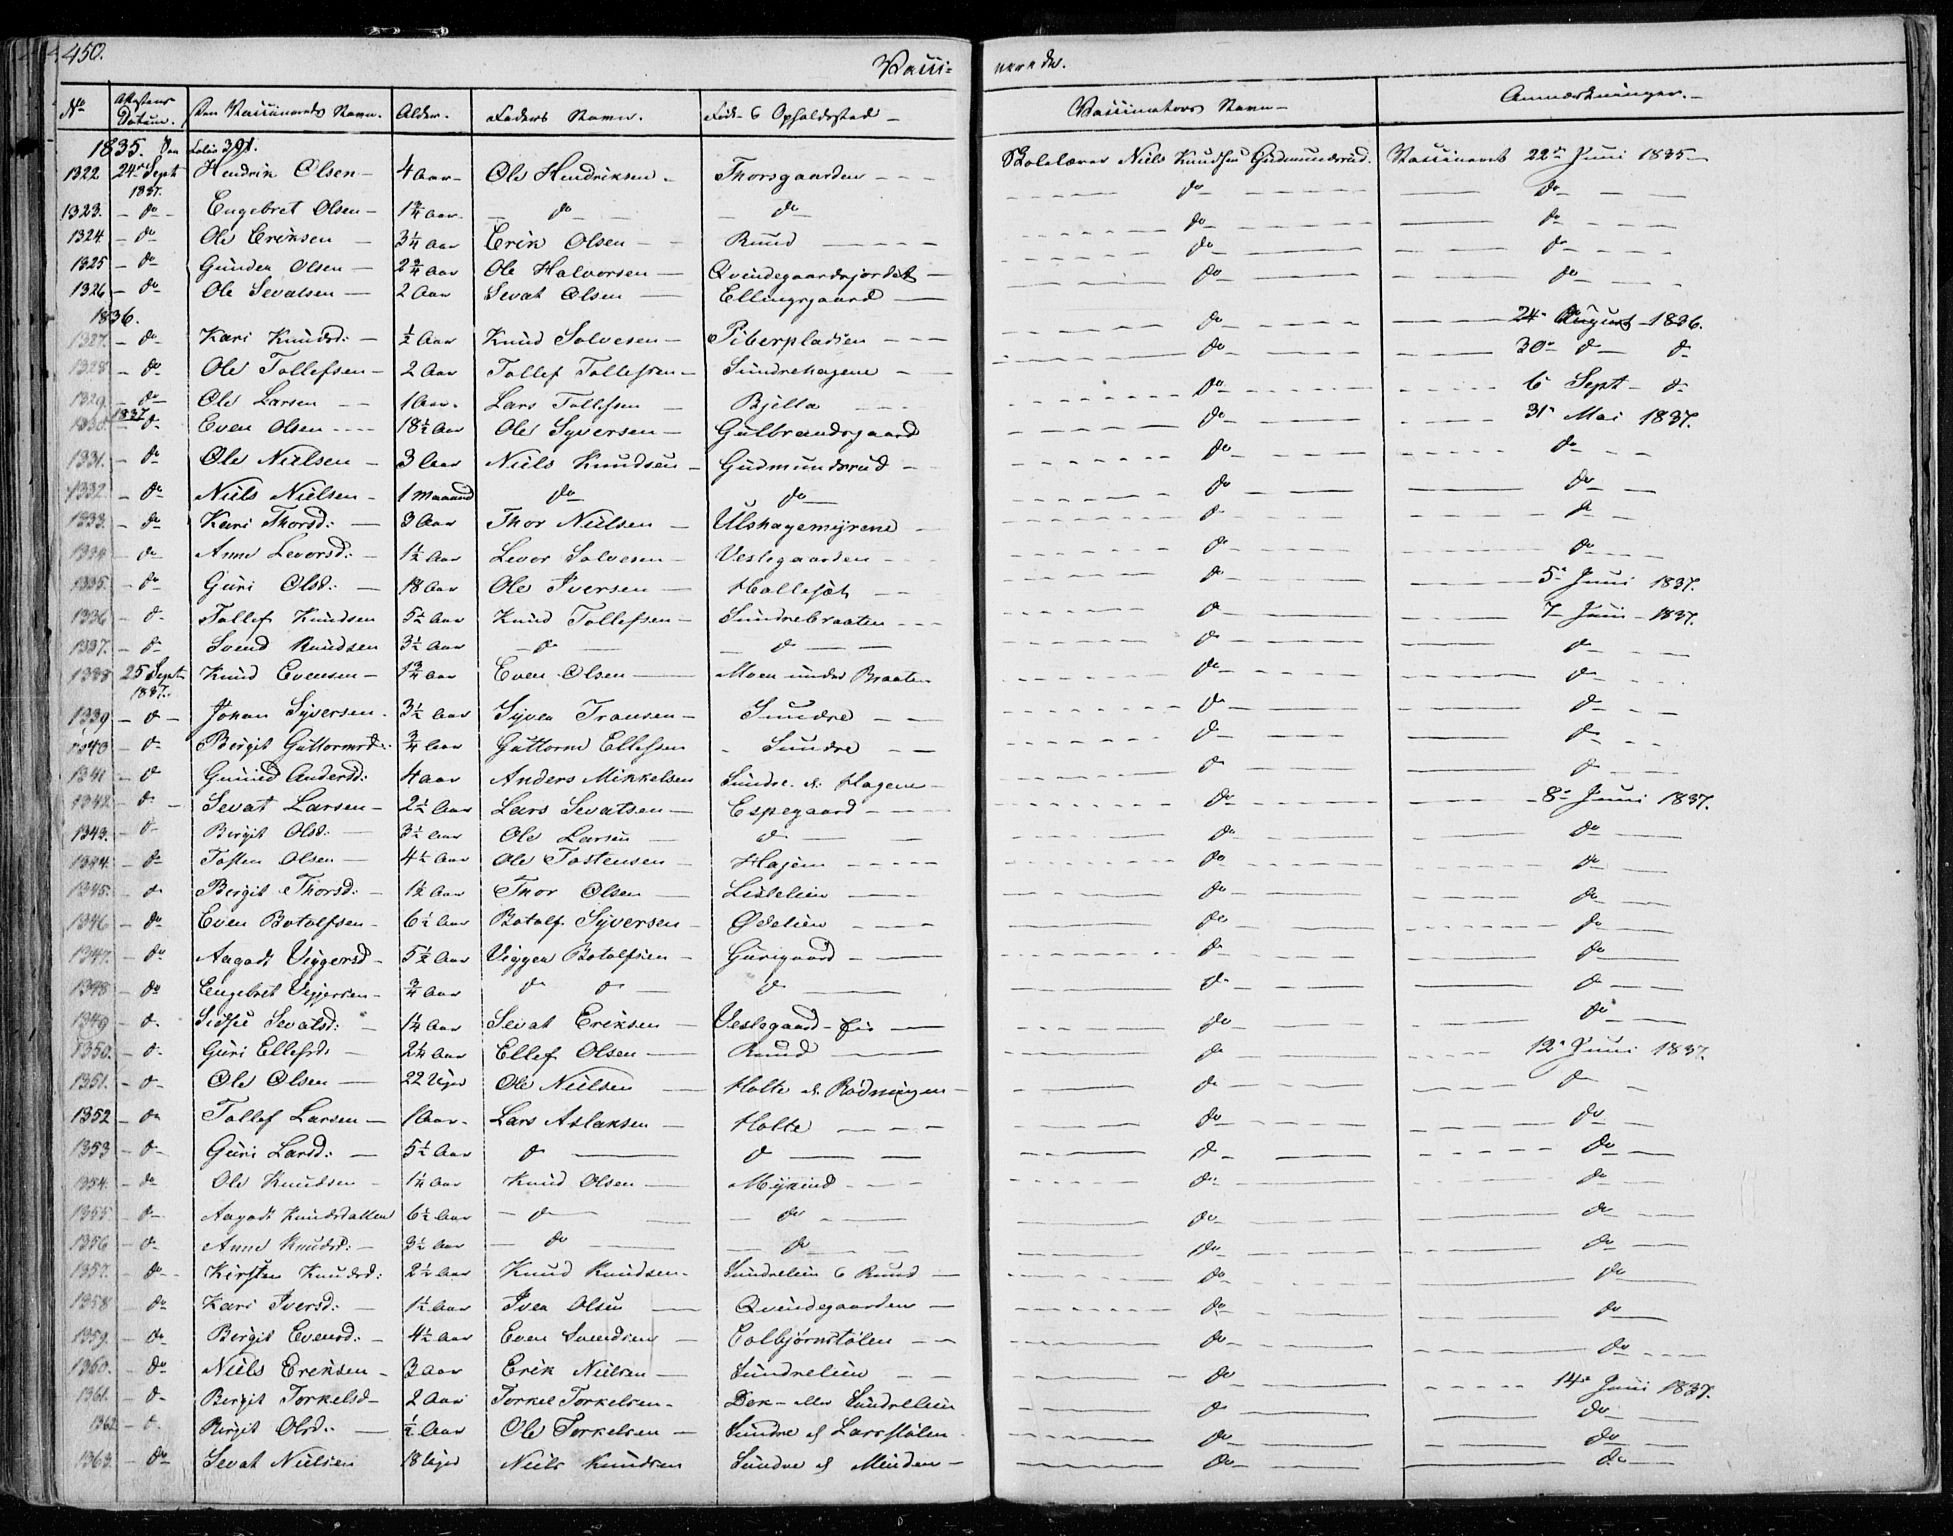 450. Vacci- nerede.
No Attestens Datum. Den Vaccineredes Navn. Alder. Faders Navn. Føde- & Opholdssted Vaccinateurs Navn Anmærkninger.
1835. Fra Folio 391.
1322 24de Sept 1837. Hendrik Olsen 4 Aar Ole Hendriksen Thorsgaarden Skolelærer Niels Knudsen Gudmundsrud. Vaccineret 22de Juni 1835
1323. do Engebret Olsen 1 3/4 Aar do do do do
1324 do Ole Eriksen 3 1/4 Aar Erik Olsen Ruud do do
1325 do Gunder Olsen 2 3/4 Aar Ole Halvorsen Qvindegaardsjordet do do
1326 do Ole Sevatsen 2 Aar Sevat Olsen Ellingsgaard do do
1836.
1327. do Kari Knudsd: 1/2 Aar Knud Solvesen Piberpladsen do 24de August 1836.
1328 do Ole Tollefsen 2 Aar Tollef Tollefsen Sundrehagene do 30te do do
1329. do Ole Larsen 1 Aar Lars Tollefsen Bjella do 6 Sept do
1837
1330 do Even Olsen 18 1/2 Aar Ole Syversen Gulbrandsgaard do 31te Mai 1837.
1331. do Ole Nielsen 3 Aar Niels Knudsen Gudmundsrud do do
1332 do Niels Nielsen 1 Maaned do do do do
1333. do Kari Thorsd: 3 Aar Thor Nielsen Ulshagemyrene do do
1334 do Anne Levorsd: 1 1/2 Aar Levor Solvesen Veslegaarden do do
1335. do Guri Olsd: 18 Aar Ole Iversen Hallesæt do 5te Juni 1837.
1336 do Tollef Knudsen 5 1/2 Aar Knud Tollefsen Sundrebraaten do 7 Juni 1837.
1337. do Svend Knudsen 3 1/2 Aar do do do do
1338 25 Sept 1837. Knud Evensen 1 3/4 Aar Even Olsen Moen under Braaten do do
1339 do Johan Syversen 3 1/2 Aar Syver Fransen Sundre do do
1340 do Bergit Guttormsd: 3/4 Aar Guttorm Ellefsen Sundre do do
1341 do Gunild Andersd: 4 Aar Anders Mikkelsen Sundre e. Hagene do do
1342. do Sevat Larsen 2 1/2 Aar Lars Sevatsen Espegaard do 8de Juni 1837.
1343. do Bergit Olsd: 3 1/2 Aar Ole Larsen do do do
1344. do Tosten Olsen 4 1/2 Aar Ole Tostensen Hagen do do
1345. do Bergit Thorsd: 1 1/4 Aar Thor Olsen Lislelien do do
1346 do Even Botolfsen 6 1/2 Aar Botolf Syversen Ødelien do do
1347. do Aagodt Viggersd 5 1/2 Aar Vigger Botolfsen Gurigaard do do
1348 do Engebret Viggersen 3/4 Aar do do do do do
1349 do Sidsel Sevatsd: 1 1/4 Aar Sevat Eriksen Veslegaard-eie do do
1350. do Guri Ellefsd: 2 1/4 Aar Ellef Olsen Ruud do 12te Juni 1837.
1351. do Ole Olsen 22 Uger Ole Nielsen Holte e. Rødningen do do
1352 do Tollef Larsen 1 Aar Lars Aslaksen Holte do do
1353 do Guri Larsd: 5 1/2 Aar do do do do
1354. do Ole Knudsen 1 1/4 Aar Knud Olsen Myrind do do
1355 do Aagodt Knudsdatter 6 1/2 Aar do do do do
1356 do Anne Knudsd: 3 1/2 Aar do do do do
1357. do Kirsten Knudsd: 2 1/2 Aar Knud Knudsen Sundrelien & Ruud do do
1358 do Kari Iversd: 1 1/2 Aar Iver Olsen Qvindegaarden do do
1359. do Bergit Evensd: 4 1/2 Aar Even Svendsen Colbjørnstølen do do
1360. do Niels Eriksen 3 Aar Erik Nielsen Sundrelien do do
1361. do Bergit Torkelsd 2 Aar Torkel Torkelsen Dok- eller Sundrelien do 14de Juni 1837.
1362 do Bergit Olsd: 1/2 Aar Ole Torkelsen Sundre e. Larsstølen do do
1363. do Sevat Nielsen 18 Uger Niels Knudsen Sundre e. Minden do do